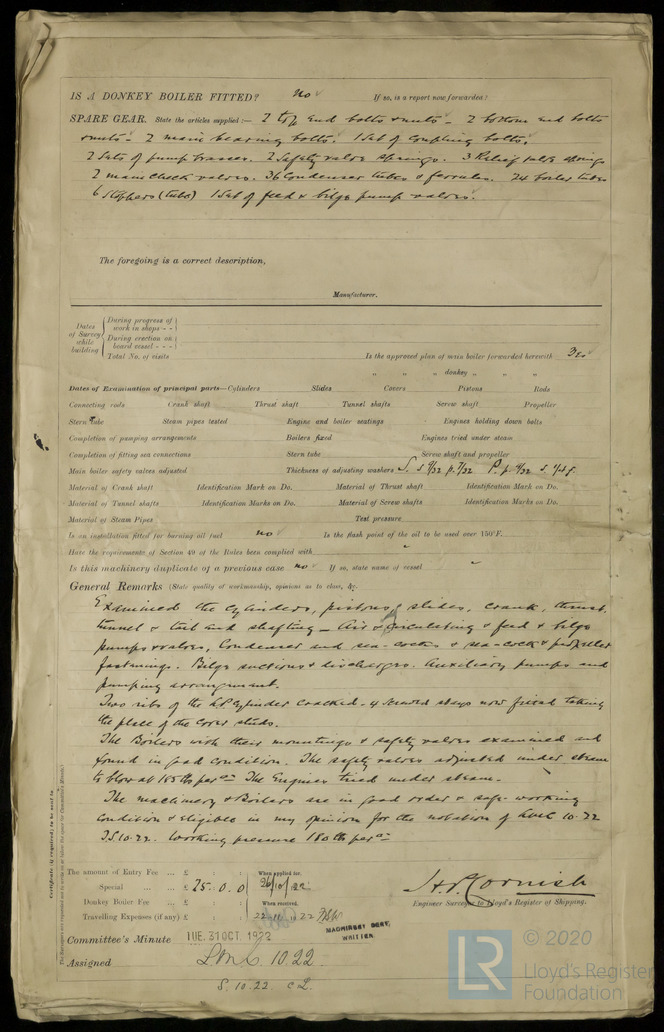 IS A DONKEY BOILER FITTED? No If so, is a report now forwarded?
SPARE GEAR. State the articles supplied:— 2 top end bolts & nuts – 2 bottom end bolts
& nuts – 2 main bearing bolts. 1 Set of Coupling bolts.
2 Sets of pump brasses. 2 Safety valve springs. 3 Relief valve springs
2 main check valves. 36 Condenser tubes & ferrules. 24 boiler tubes
6 Stoppers (tube) 1 Set of feed & bilge pump valves.
The foregoing is a correct description,
Manufacturer.
Dates of Survey while building
During progress of work in shops - -
During erection on board vessel - - -
Total No. of visits
Is the approved plan of main boiler forwarded herewith
" " " donkey " " "
Dates of Examination of principal parts—Cylinders Slides Covers Pistons Rods
Connecting rods Crank shaft Thrust shaft Tunnel shafts Screw shaft Propeller
Stern tube Steam pipes tested Engine and boiler seatings Engines holding down bolts
Completion of pumping arrangements Boilers fixed Engines tried under steam
Completion of fitting sea connections Stern tube Screw shaft and propeller
Main boiler safety valves adjusted Thickness of adjusting washers
Material of Crank shaft Identification Mark on Do. Material of Thrust shaft Identification Mark on Do.
Material of Tunnel shafts Identification Marks on Do. Material of Screw shafts Identification Marks on Do.
Material of Steam Pipes Test pressure
Is an installation fitted for burning oil fuel no Is the flash point of the oil to be used over 150°F.
Have the requirements of Section 49 of the Rules been complied with "
Is this machinery duplicate of a previous case no If so, state name of vessel "
General Remarks (State quality of workmanship, opinions as to class, &c.
Examined the cylinders, pistons, slides, crank, thrust,
tunnel & tail end shafting – Air & Circulating & feed & bilge
pumps & valves, Condenser and sea-cocks & sea-cock & propeller
fastenings. Bilge suctions & discharges. Auxiliary pumps and
pumping arrangement.
Two ribs of the L.P. Cylinder cracked – 4 Screwed stays now fitted taking
the place of the cover studs.
The Boilers with their mountings & safety valves examined and
found in good condition. The safety valves adjusted under steam
to blow at 185 lbs per □" The Engines tried under steam.
The machinery & Boilers are in good order & safe working
condition & eligible in my opinion for the notation of LMC 10.22
T.S. 10.22. Working pressure 180 lbs per □"
Certificate (if required) to be sent to
The amount of Entry Fee ... £ : : When applied for,
Special ... ... £ 25.0.0 26/10/22
Donkey Boiler Fee ... £ : : When received,
Travelling Expenses (if any) £ : : 22.11.22
H. P. Cornish
Engineer Surveyor to Lloyd's Register of Shipping.
Committee's Minute TUE. 31 OCT. 1922
MACHINERY DEPT. WRITTEN
Assigned LMC 10.22
S. 10.22 CL
LR
© 2020
Lloyd's Register
Foundation